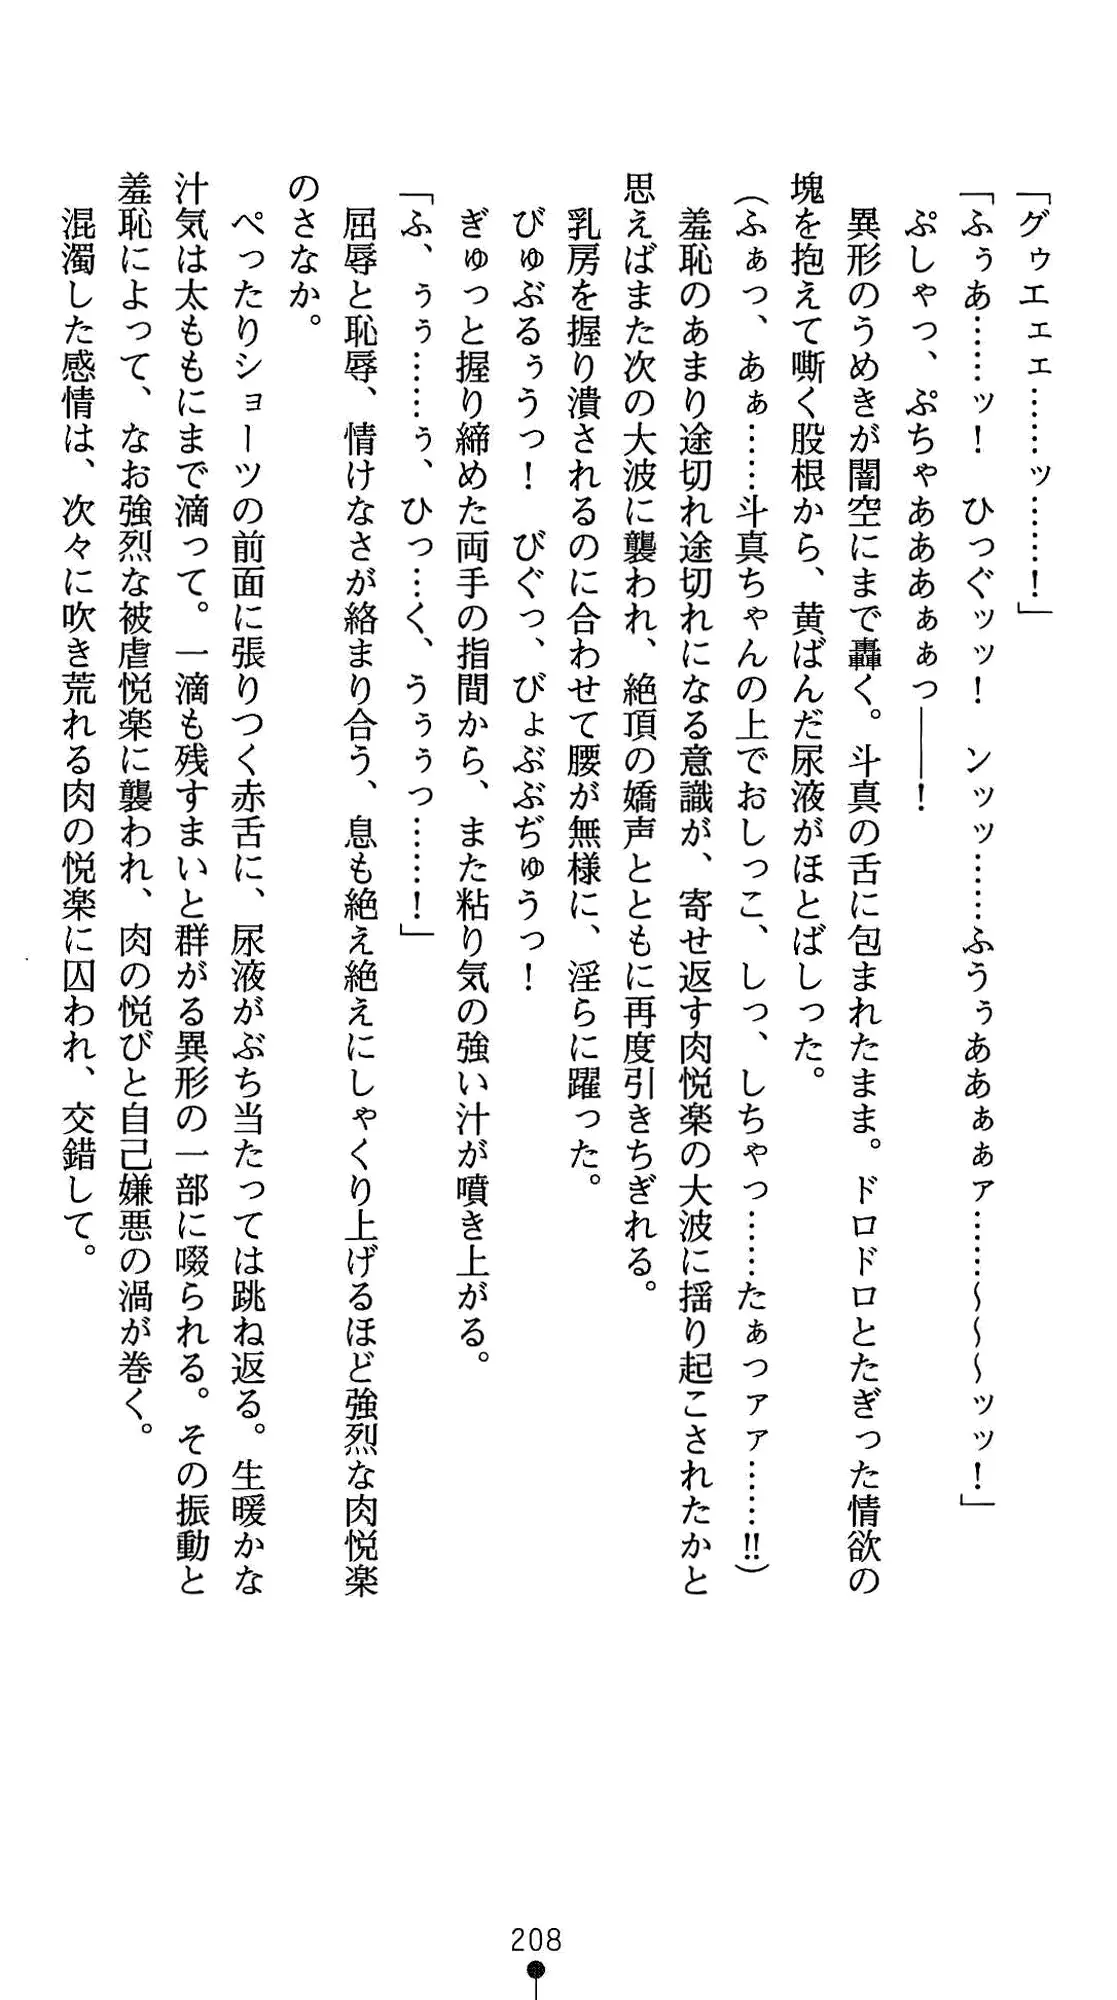 「グゥエェェ……ッ……！」
「ふぅあ……ッ！　ひっぐッッ！　ンッッ……ふうぅああぁぁァ……～～～ッッ！」
ぷしゃっ、ぷちゃあああぁぁっ――！
異形のうめきが闇空にまで轟く。斗真の舌に包まれたまま。ドロドロとたぎった情欲の
塊を抱えて嘶く股根から、黄ばんだ尿液がほとばしった。
（ふぁっ、あぁ……斗真ちゃんの上でおしっこ、しっ、しちゃっ……たぁっァァ……!!）
羞恥のあまり途切れ途切れになる意識が、寄せ返す肉悦楽の大波に揺り起こされたかと
思えばまた次の大波に襲われ、絶頂の嬌声とともに再度引きちぎれる。
乳房を握り潰されるのに合わせて腰が無様に、淫らに躍った。
びゅぶるぅうっ！　びぐっ、びょぶぶぢゅうっ！
ぎゅっと握り締めた両手の指間から、また粘り気の強い汁が噴き上がる。
「ふ、ぅぅ……ぅ、ひっ…く、うぅぅっ……！」
屈辱と恥辱、情けなさが絡まり合う、息も絶え絶えにしゃくり上げるほど強烈な肉悦楽
のさなか。
ぺったりショーツの前面に張りつく赤舌に、尿液がぶち当たっては跳ね返る。生暖かな
汁気は太ももにまで滴って。一滴も残すまいと群がる異形の一部に啜られる。その振動と
羞恥によって、なお強烈な被虐悦楽に襲われ、肉の悦びと自己嫌悪の渦が巻く。
混濁した感情は、次々に吹き荒れる肉の悦楽に囚われ、交錯して。
208